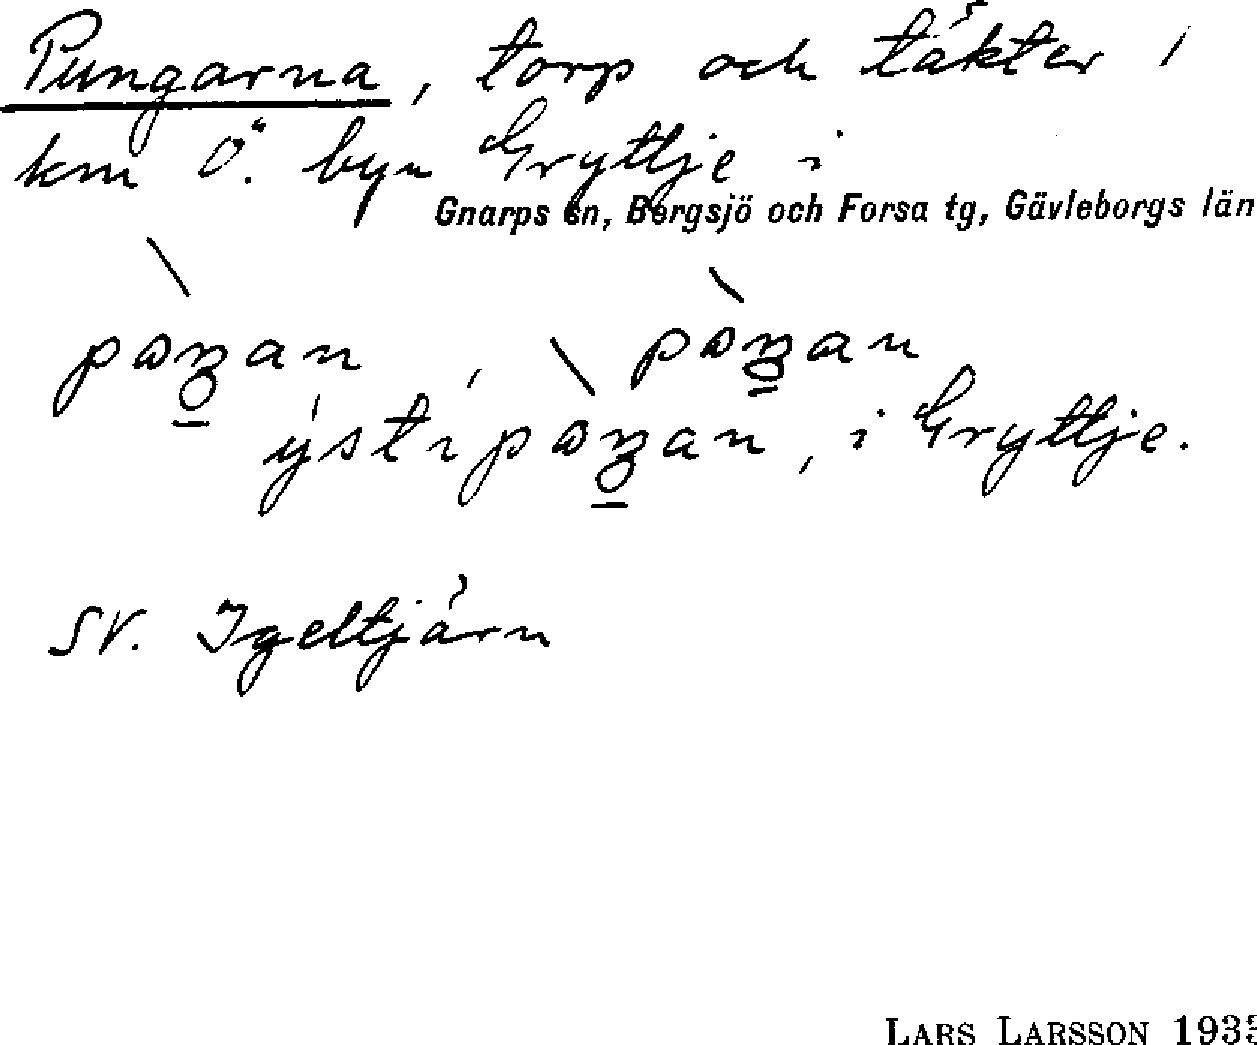 Pungarna, torp och täkter 1
km Ö. byn Gryttje i
Gnarps sn, Bergsjö och Forsa tg, Gävleborgs län
i Gryttje.
SV. Igeltjärn
LARS LARSSON